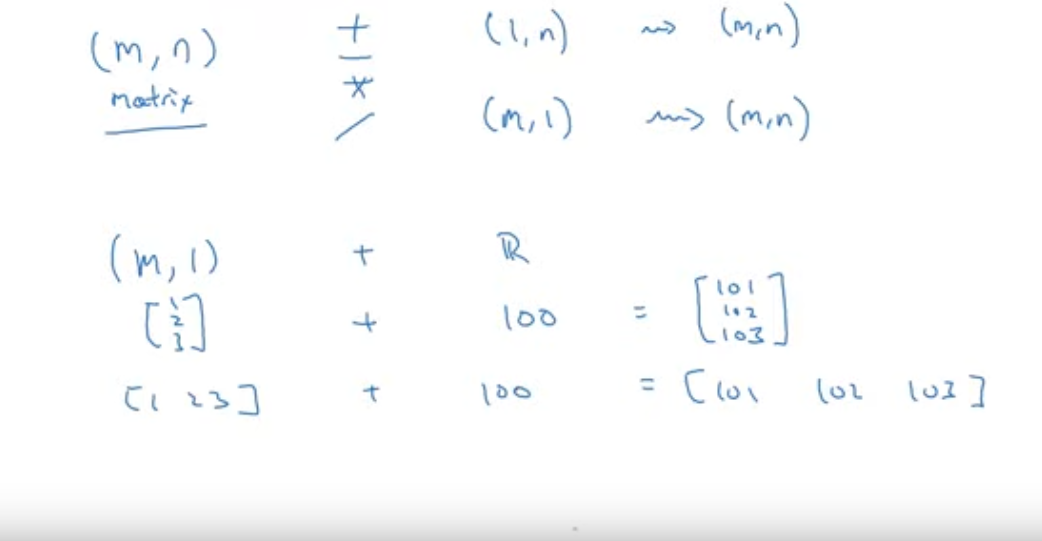 (m, n) + (1, n) ⇝ (m, n)
matrix - *
/ (m, 1) ⇝ (m, n)
(m, 1) + ℝ
[1 2 3] + 100 = [101 102 103]
[1 2 3] + 100 = [101 102 103]